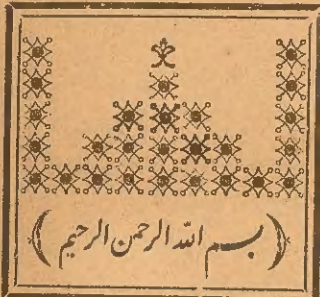 ( بسم الله الرحمن الرحيم )